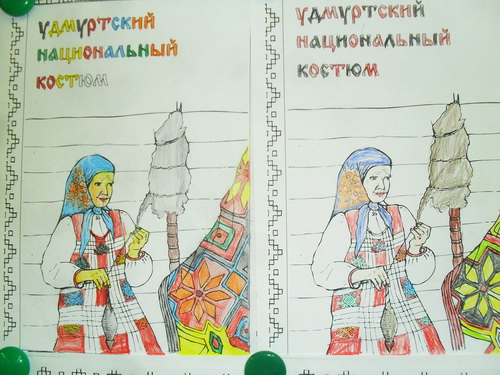 удмуртский
национальный
костюм
удмуртский
национальный
костюм